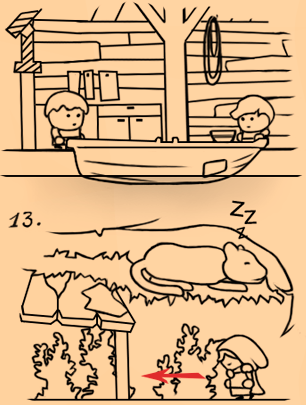 13.
ZZZ